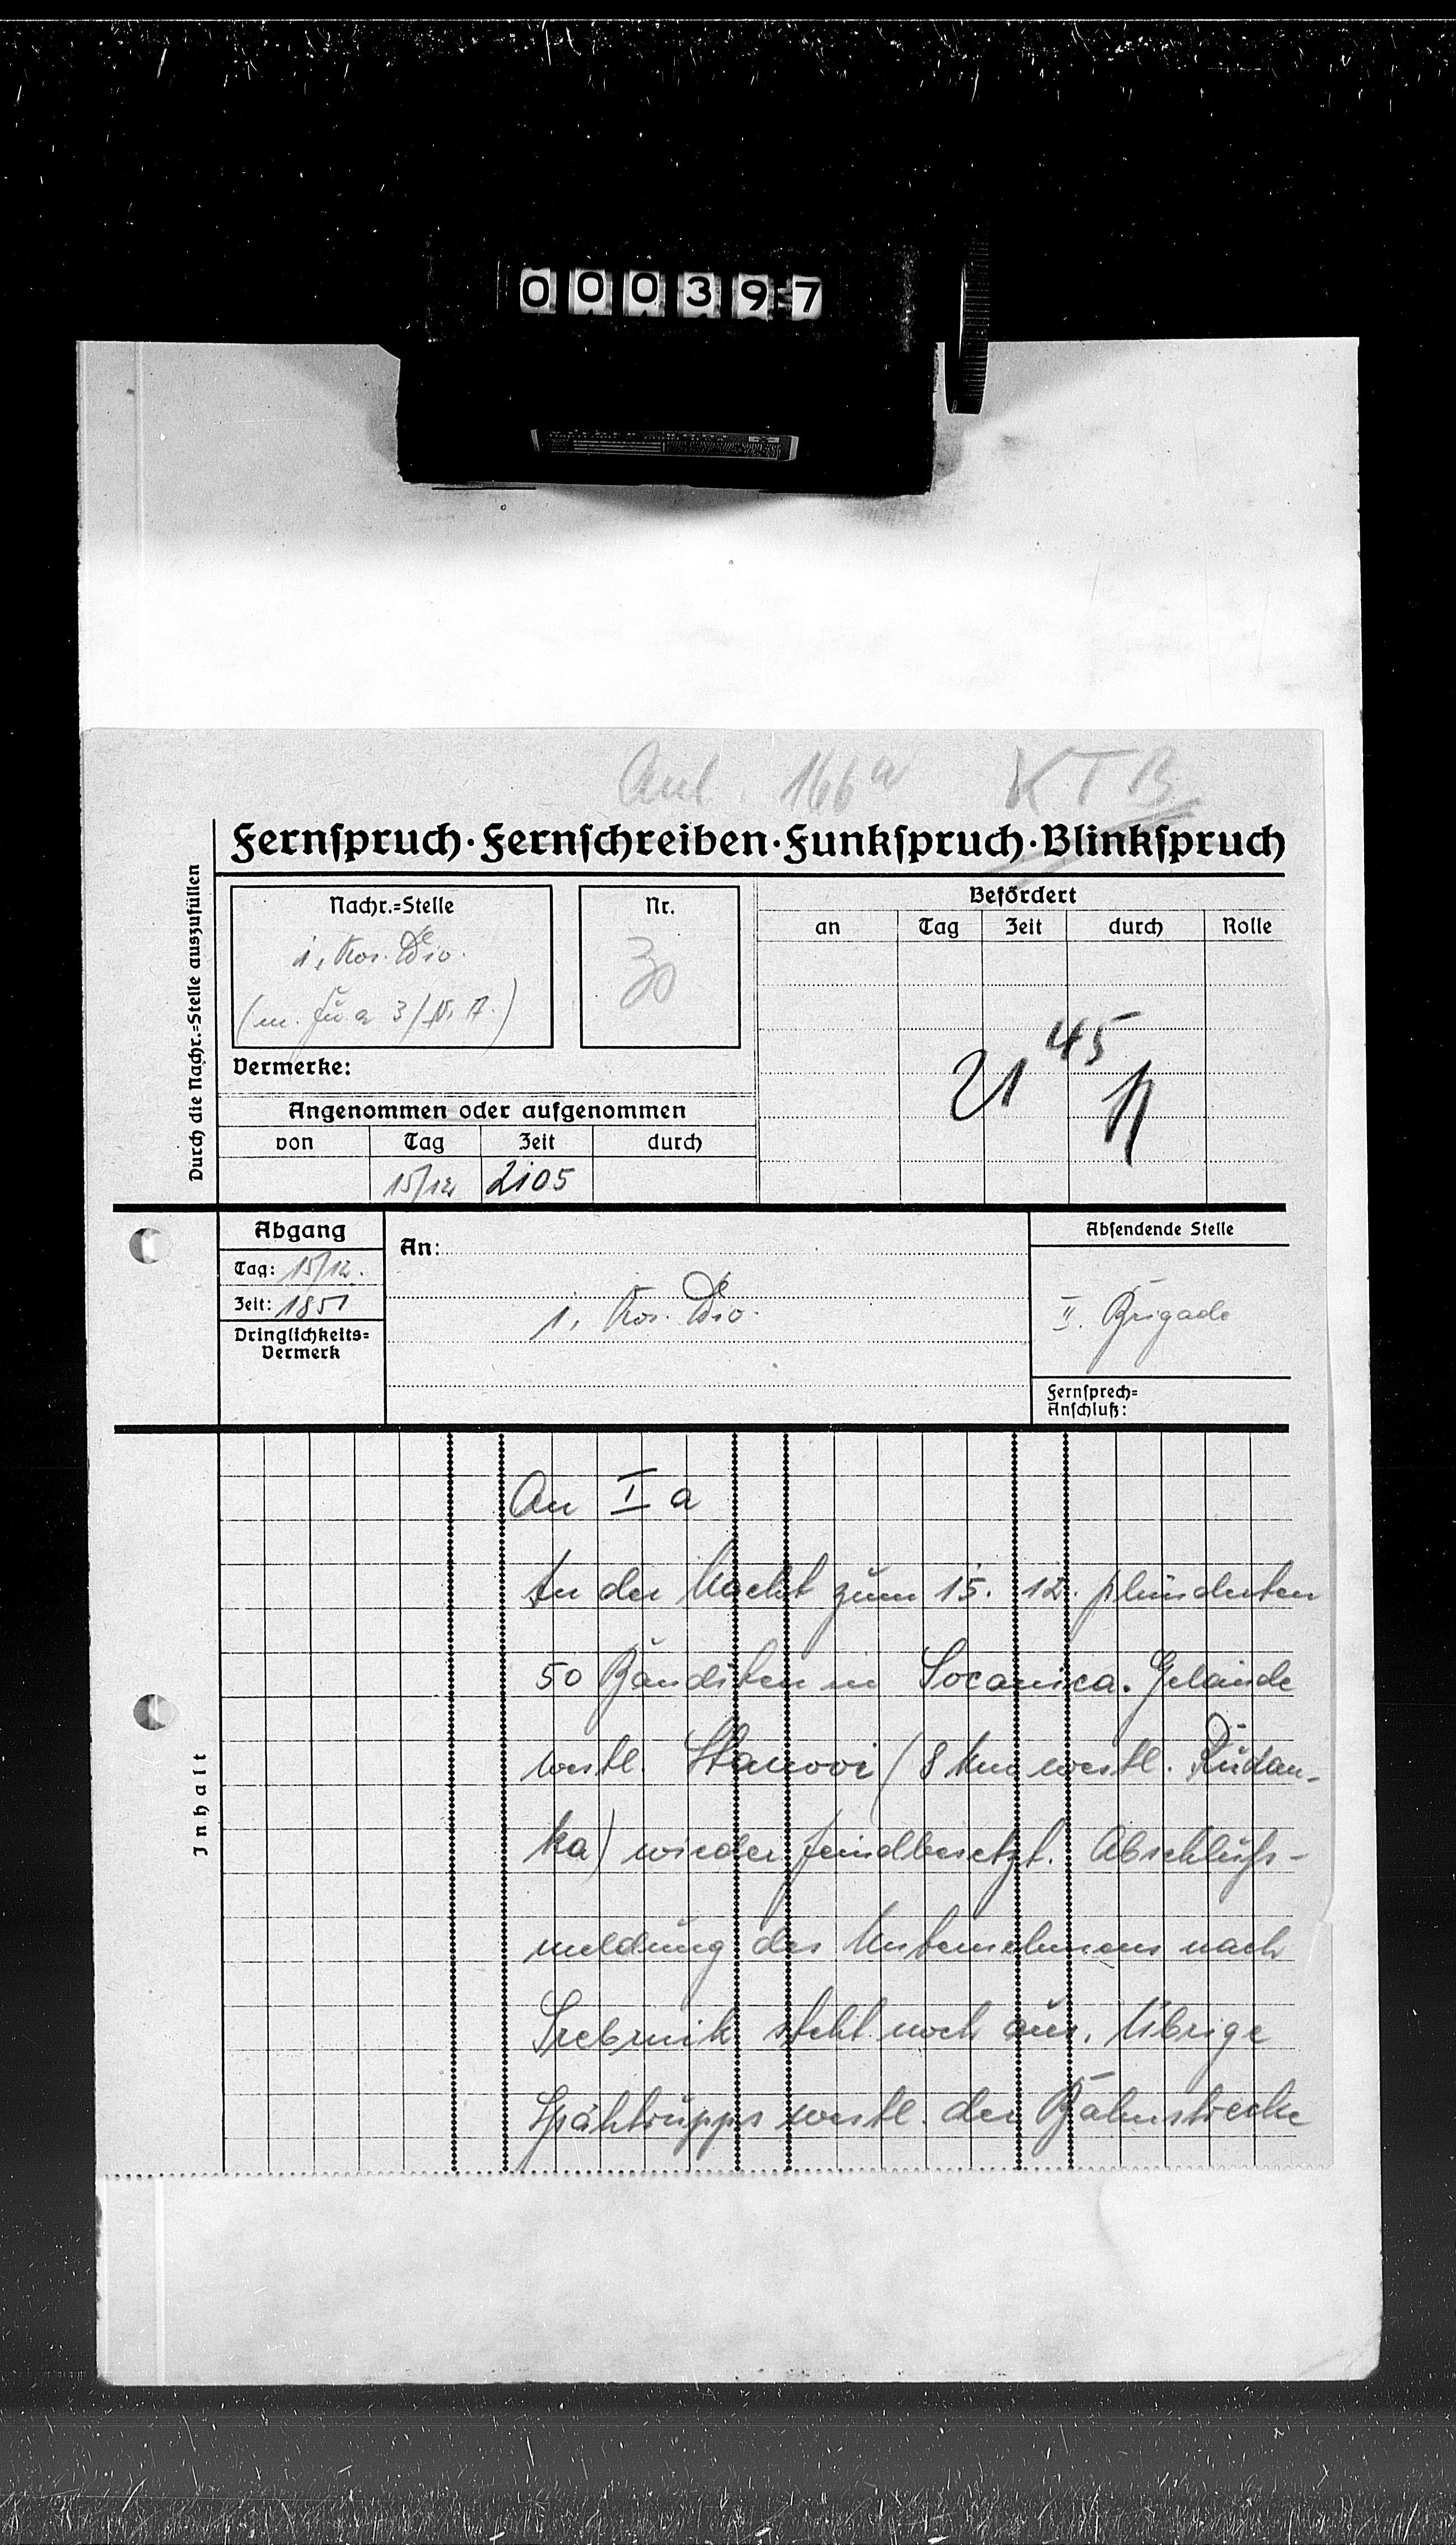 000397
Anl. 166a KTB
Fernspruch·Fernschreiben·Funkspruch·Blinkspruch
Durch die Nachr.=Stelle auszufüllen
Nachr.=Stelle
1. Kos. Div.
3/N. A.)
Nr.
30
Befördert
an Tag Zeit durch Rolle
21 45
Vermerke:
Angenommen oder aufgenommen
von Tag Zeit durch
15/12 2105
Abgang
Tag: 15/12.
Zeit: 1851
Dringlichkeits=
Vermerk
An:
1. Kos. Div.
Absendende Stelle
II. Brigade
Fernsprech=
Anschluß:
Inhalt
An I a
In der Nacht zum 15. 12. plünderten
50 Banditen in Socanica. Gelände
westl. Stanovi (8 km westl. Rudan-
ka) wieder feindbesetzt. Abschluß-
meldung des Unternehmens nach
Srebrnik steht noch aus. Übrige
Spähtrupps westl. der Bahnstrecke